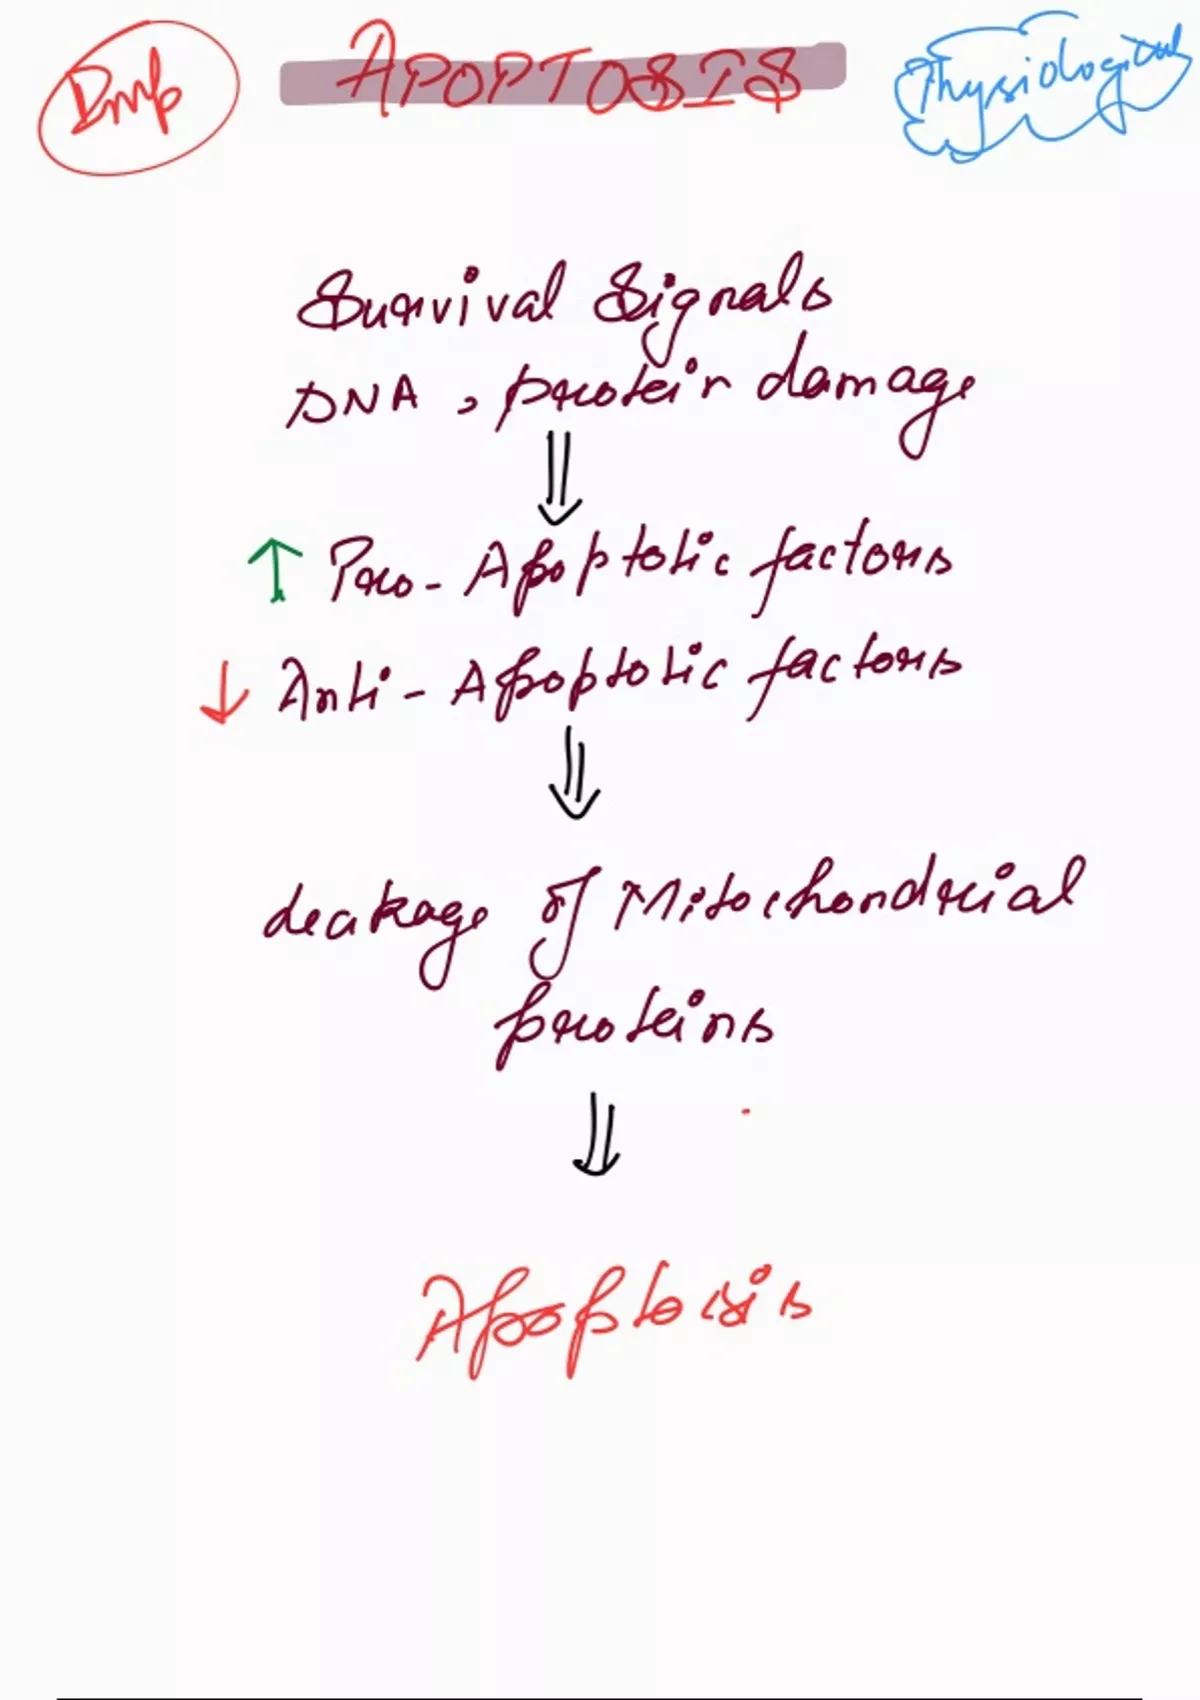 Imp
APOPTOSIS
Physiological
Survival Signals
DNA, protein damage
↑ Pro-Apoptotic factors
↓ Anti-Apoptotic factors
Leakage of Mitochondrial
proteins
Apoptosis